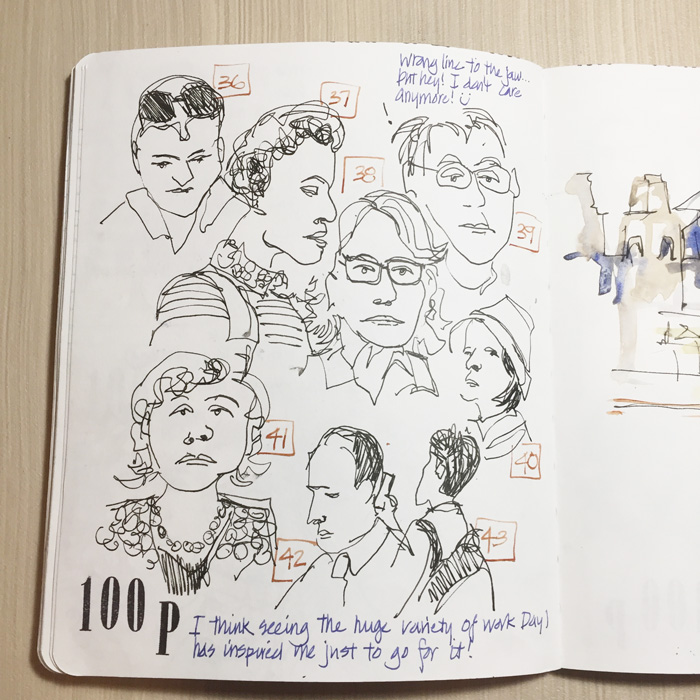 Wrong line to the jaw...
but hey! I don't care
anymore! ☺
36
37
38
39
40
41
42
43
100 P
I think seeing the huge variety of work Day 1
has inspired me just to go for it!